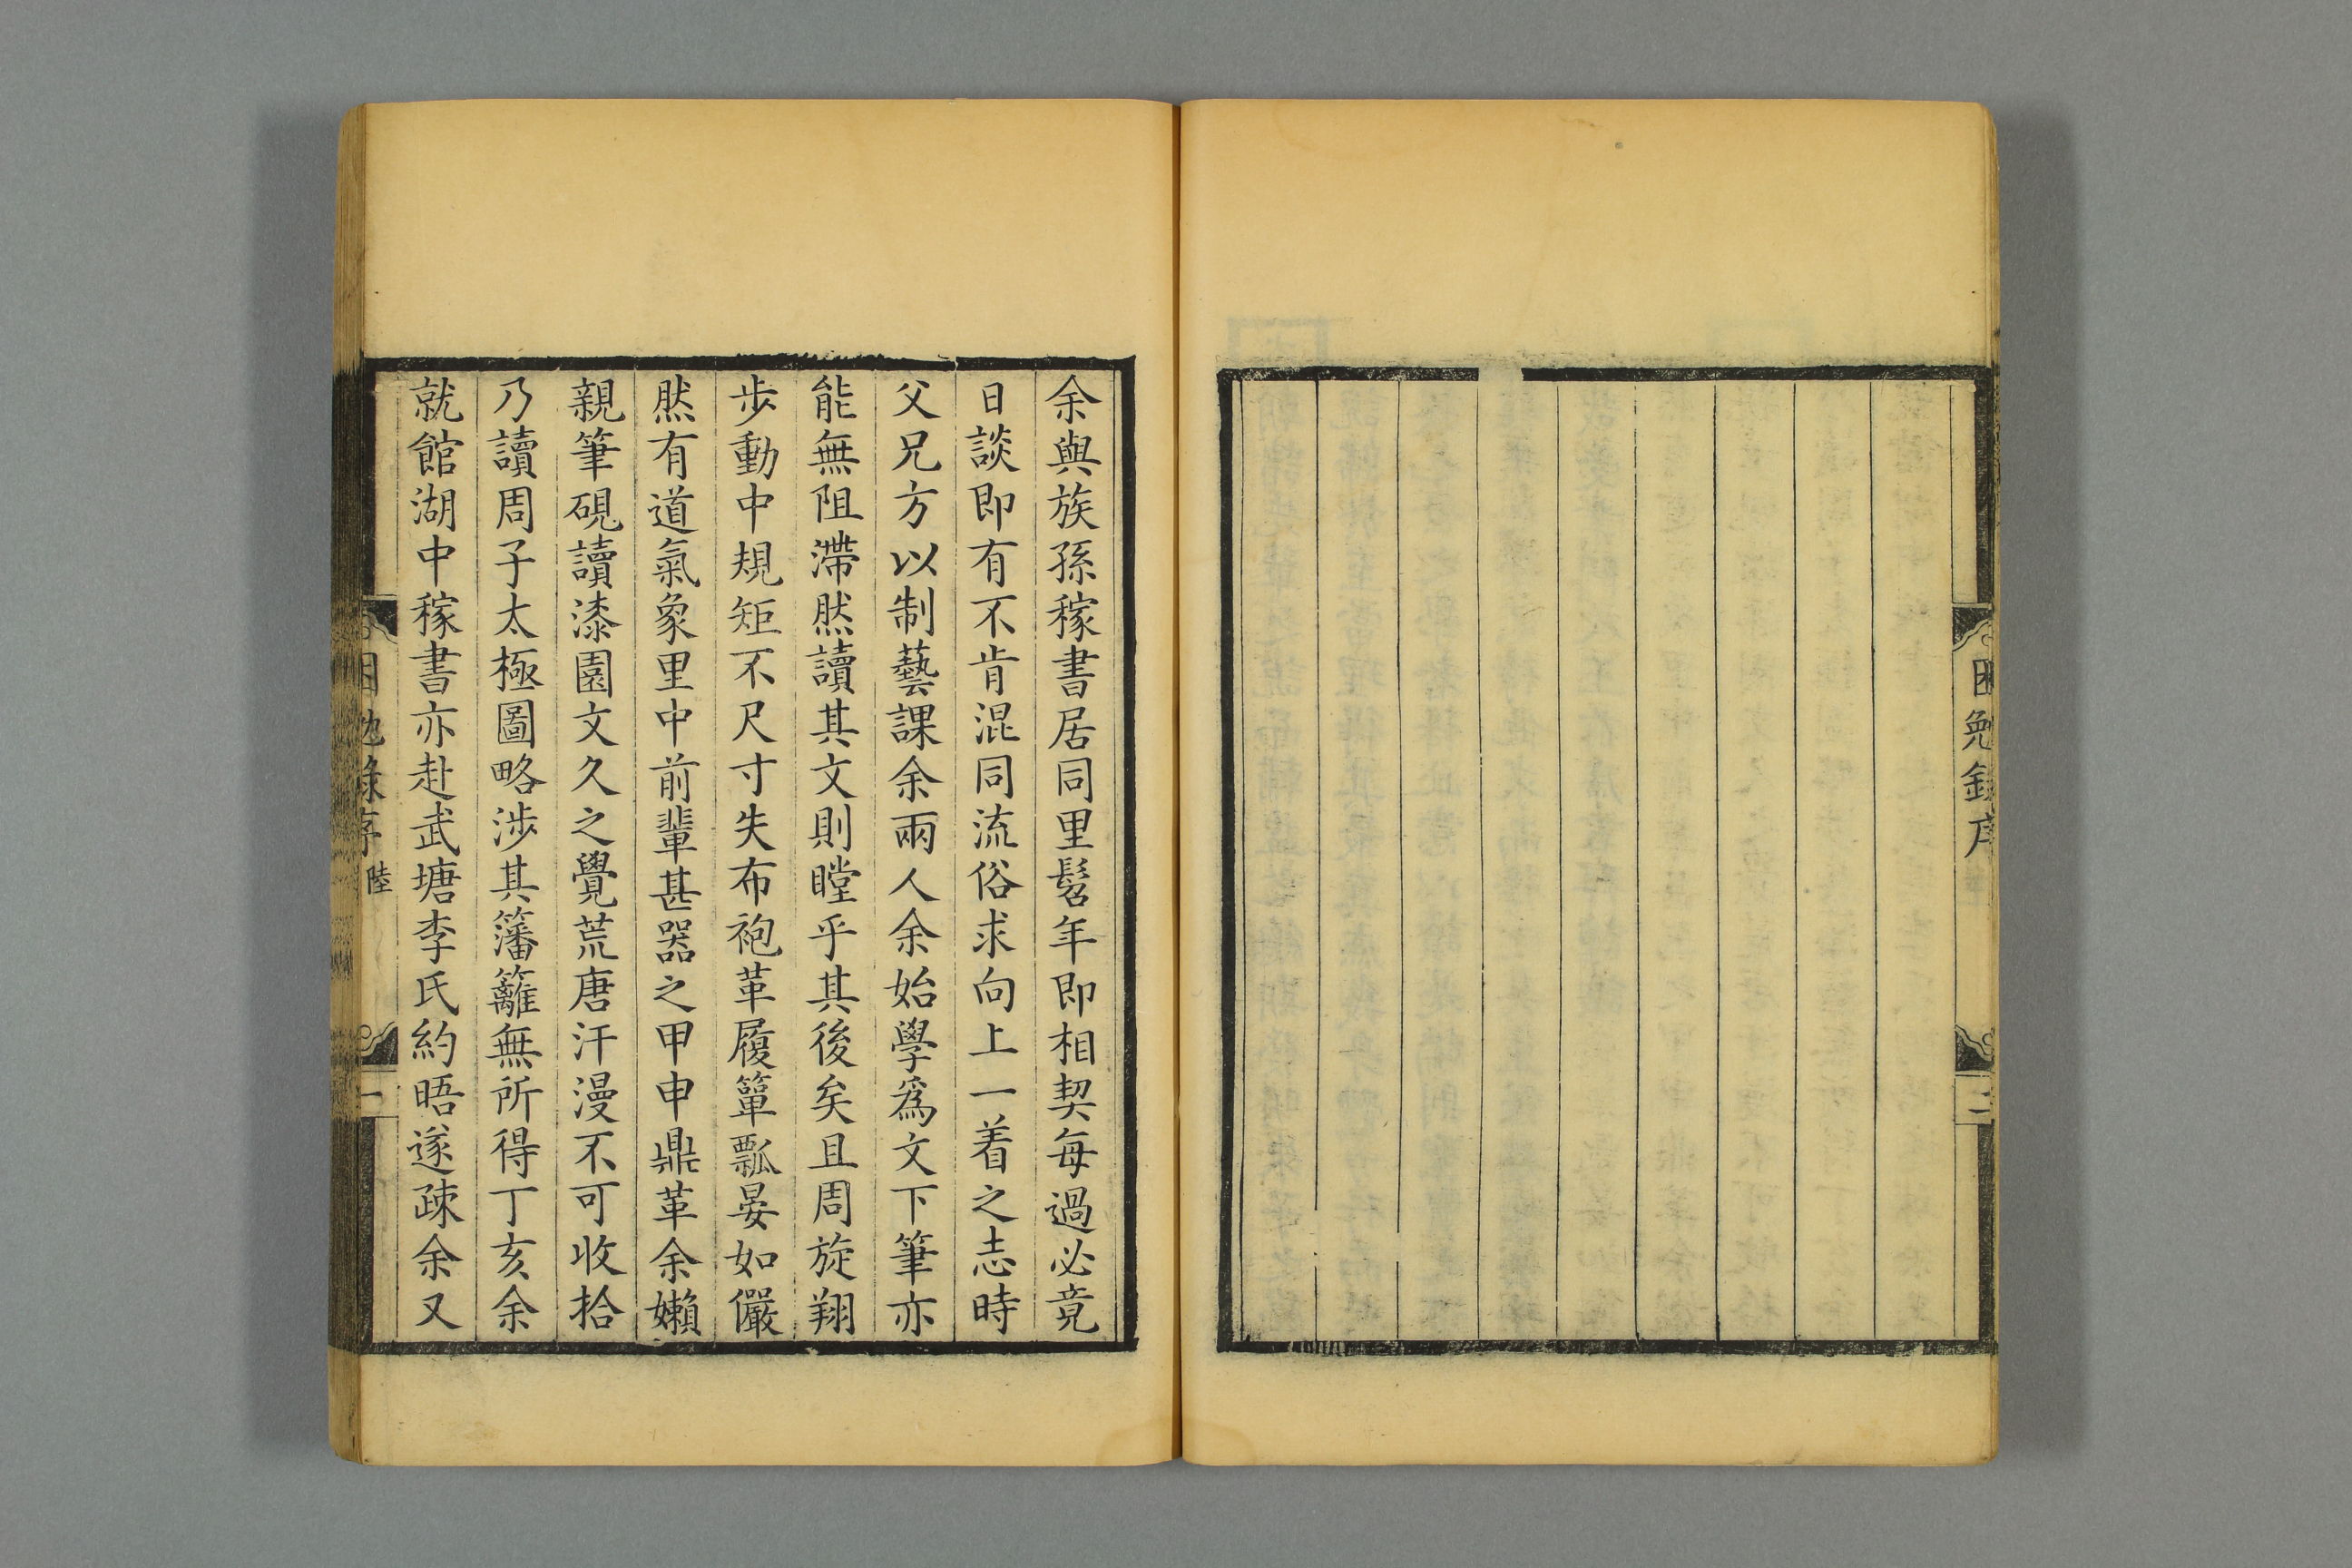 困勉錄序
二
余與族孫稼書居同里髫年即相契每過必竟
日談即有不肯混同流俗求向上一着之志時
父兄方以制藝課余兩人余始學爲文下筆亦
能無阻滯然讀其文則瞠乎其後矣且周旋翔
步動中規矩不尺寸失布袍革履簞瓢晏如儼
然有道氣象里中前輩甚器之甲申鼎革余嬾
親筆硯讀漆園文久之覺荒唐汗漫不可收拾
乃讀周子太極圖略涉其籓籬無所得丁亥余
就館湖中稼書亦赴武塘李氏約晤遂疎余又
困勉錄序 陸
一